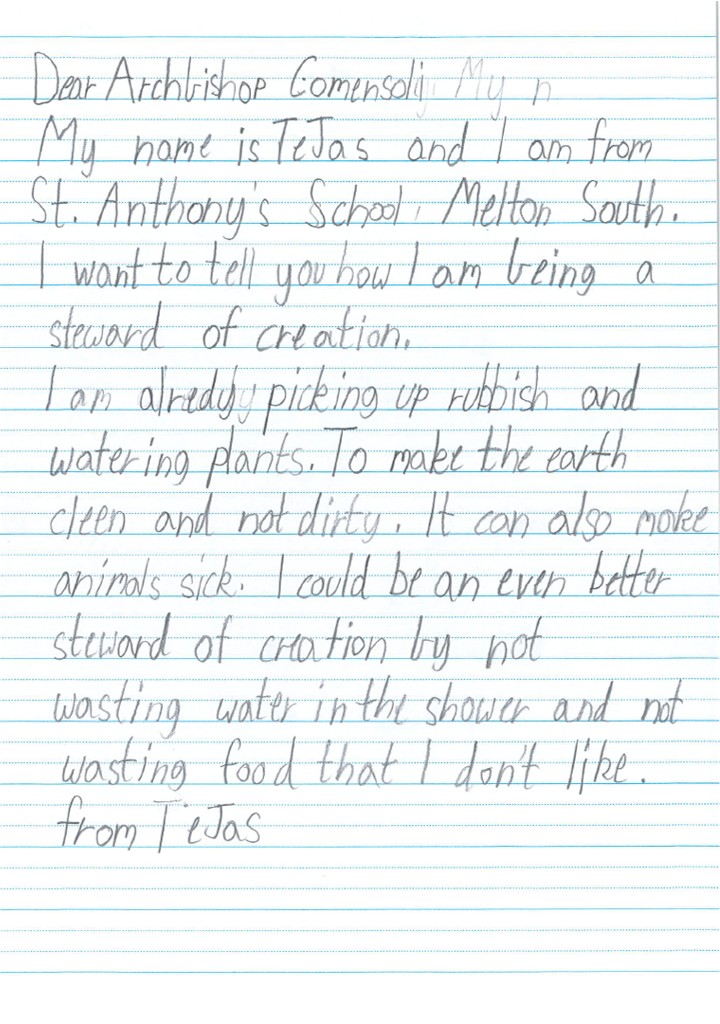 Dear Archbishop Comensoli, My n
My name is TeJas and I am from
St. Anthony's School, Melton South.
I want to tell you how I am being a
steward of creation.
I am alredy picking up rubbish and
watering plants. To make the earth
cleen and not dirty. It can also make
animals sick. I could be an even better
steward of creation by not
wasting water in the shower and not
wasting food that I don't like.
from TeJas